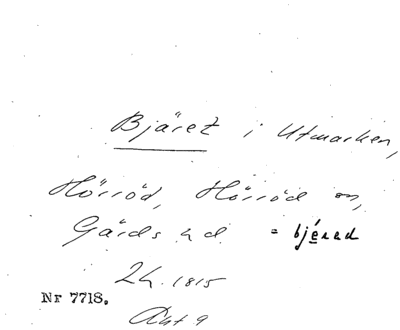 Bjäret i Utmarken,
Hörröd, Hörröd sn,
Gärds hd = bjéred
Lh. 1815
Nr 7718.
Akt 9